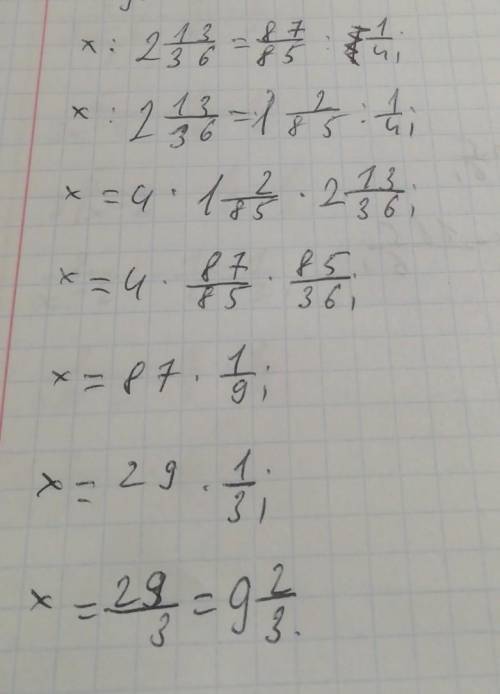 x : 2 13/36 = 87/85 : 1/4;
x : 2 13/36 = 1 2/85 : 1/4;
x = 4 · 1 2/85 · 2 13/36;
x = 4 · 87/85 · 85/36;
x = 87 · 1/9;
x = 29 · 1/3;
x = 29/3 = 9 2/3.